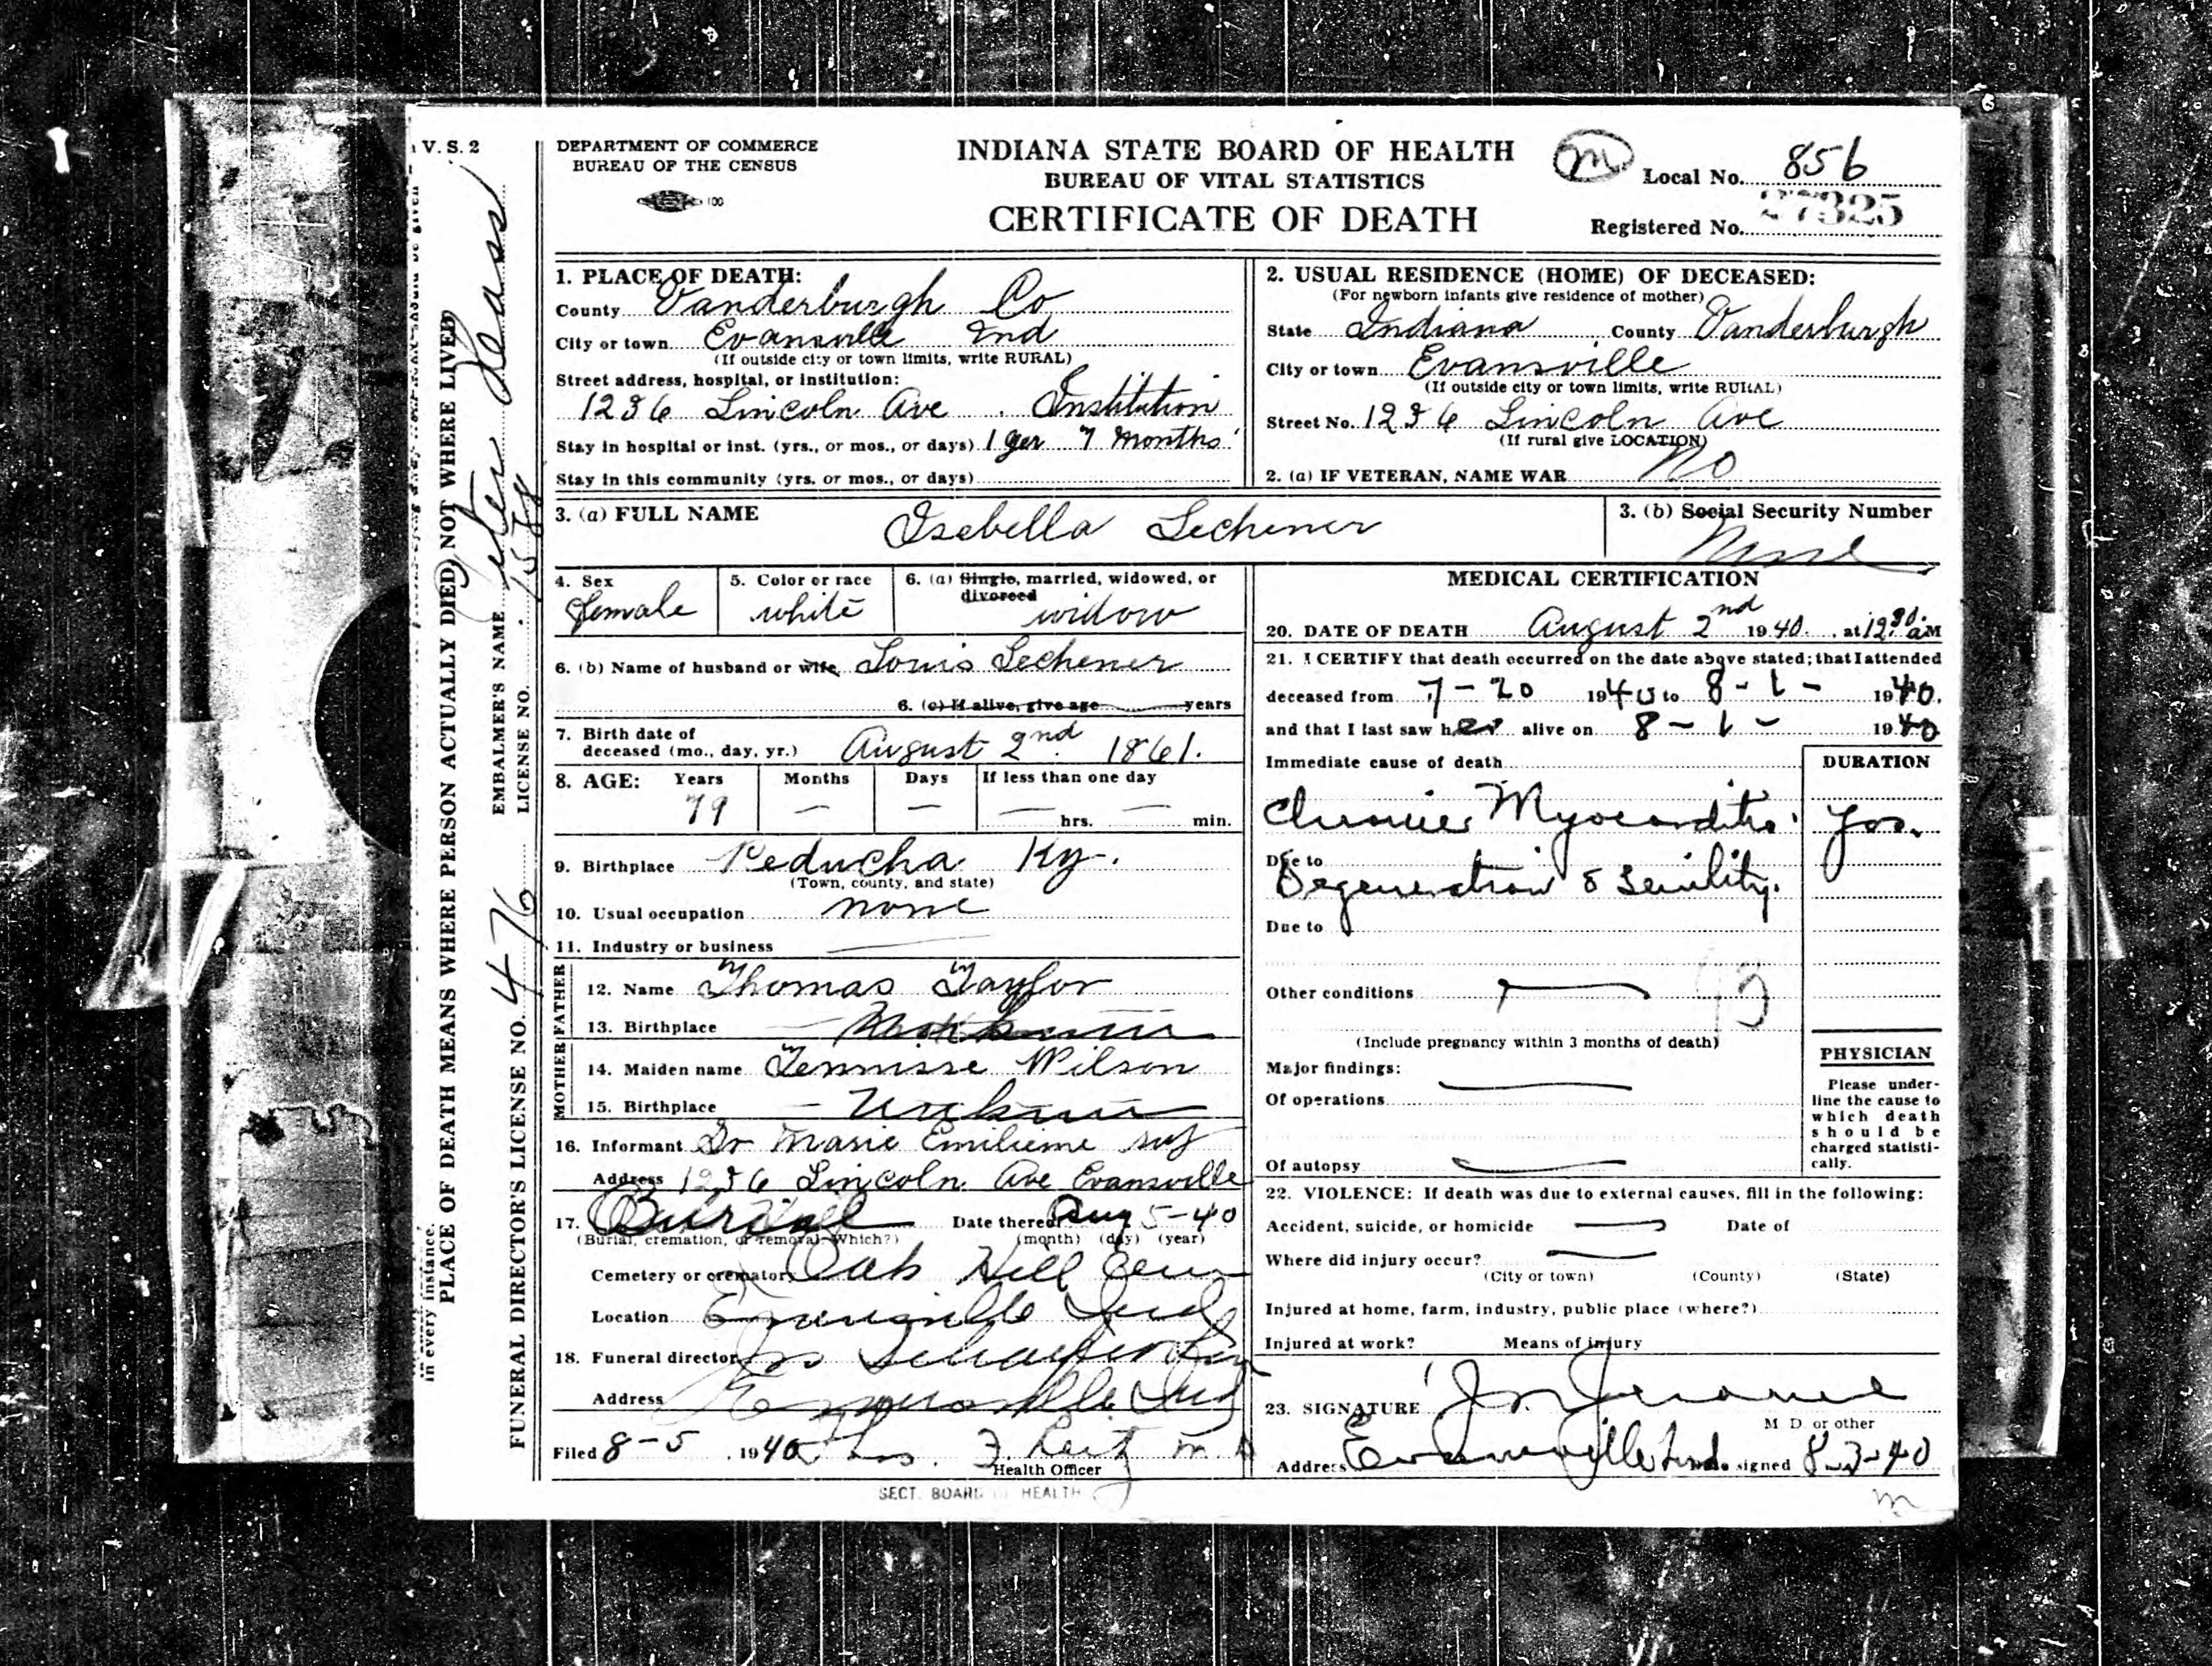 V. S. 2
DEPARTMENT OF COMMERCE
BUREAU OF THE CENSUS
INDIANA STATE BOARD OF HEALTH
BUREAU OF VITAL STATISTICS
CERTIFICATE OF DEATH
m
Local No. 856
Registered No. 27325
1. PLACE OF DEATH:
County Vanderburgh Co
City or town Evansville Ind
(If outside city or town limits, write RURAL)
Street address, hospital, or institution:
1236 Lincoln Ave. Institution
Stay in hospital or inst. (yrs., or mos., or days) 1 yer 7 months
Stay in this community (yrs. or mos., or days)
2. USUAL RESIDENCE (HOME) OF DECEASED:
(For newborn infants give residence of mother)
State Indiana County Vanderburgh
City or town Evansville
(If outside city or town limits, write RURAL)
Street No. 1236 Lincoln Ave
(If rural give LOCATION)
2. (a) IF VETERAN, NAME WAR No
3. (a) FULL NAME Isebella Lechener
3. (b) Social Security Number
None
4. Sex
female
5. Color or race
white
6. (a) Single, married, widowed, or
divorced
widow
6. (b) Name of husband or wife Louis Lechener
6. (c) If alive, give age years
7. Birth date of
deceased (mo., day, yr.) August 2nd 1861.
8. AGE: Years Months Days If less than one day
79 — — — hrs. — min.
9. Birthplace Peducha Ky.
(Town, county, and state)
10. Usual occupation none
11. Industry or business
FATHER
12. Name Thomas Taylor
13. Birthplace
MOTHER
14. Maiden name Tennisse Wilson
15. Birthplace — Unknown
16. Informant Sr Marie Emilieme
Address 1236 Lincoln Ave Evansville
17. Burial Date thereof Aug 5-40
(Burial, cremation, or removal. Which?) (month) (day) (year)
Cemetery or crematory Oak Hill Cem
Location Evansville Ind
18. Funeral director
Address Evansville Ind
Filed 8-5 1940
Health Officer
SECT. BOARD OF HEALTH
MEDICAL CERTIFICATION
20. DATE OF DEATH August 2nd 1940, at 12:30 aM
21. I CERTIFY that death occurred on the date above stated; that I attended
deceased from 7-20 1940 to 8-1- 1940.
and that I last saw her alive on 8-1- 1940
Immediate cause of death
DURATION
Chronic Myocarditis. yrs.
Due to
Degeneration & Senility.
Due to
Other conditions
93
(Include pregnancy within 3 months of death)
Major findings:
Of operations
Of autopsy
PHYSICIAN
Please under-
line the cause to
which death
should be
charged statisti-
cally.
22. VIOLENCE: If death was due to external causes, fill in the following:
Accident, suicide, or homicide Date of
Where did injury occur?
(City or town) (County) (State)
Injured at home, farm, industry, public place (where?)
Injured at work? Means of injury
23. SIGNATURE
M D. or other
Address Evansville Ind. Date signed 8-3-40
m
in every instance.
PLACE OF DEATH MEANS WHERE PERSON ACTUALLY DIED, NOT WHERE LIVED
EMBALMER'S NAME
LICENSE NO.
FUNERAL DIRECTOR'S LICENSE NO. 476